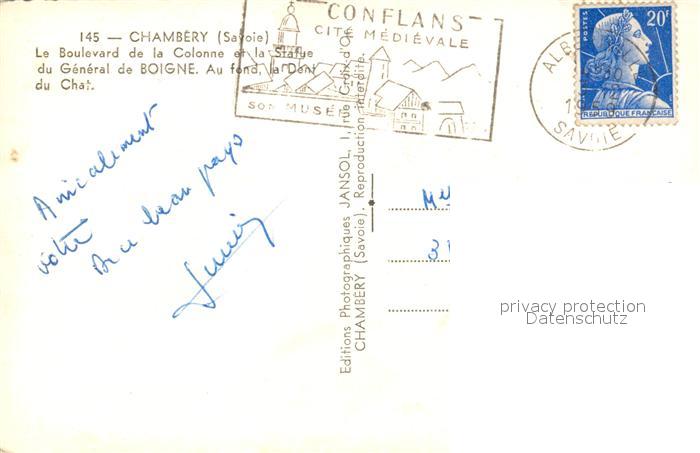 145 — CHAMBÉRY (Savoie)
Le Boulevard de la Colonne et la Statue
du Général de BOIGNE. Au fond, la Dent
du Chat.
CONFLANS
CITÉ MÉDIÉVALE
SON MUSÉE
POSTES
20F
REPUBLIQUE FRANÇAISE
ALB
SAVOIE
Amicalement
votre
De ce beau pays
Editions Photographiques JANSOL, 1, rue Croix-d'Or
CHAMBÉRY (Savoie). Reproduction interdite.
privacy protection
Datenschutz